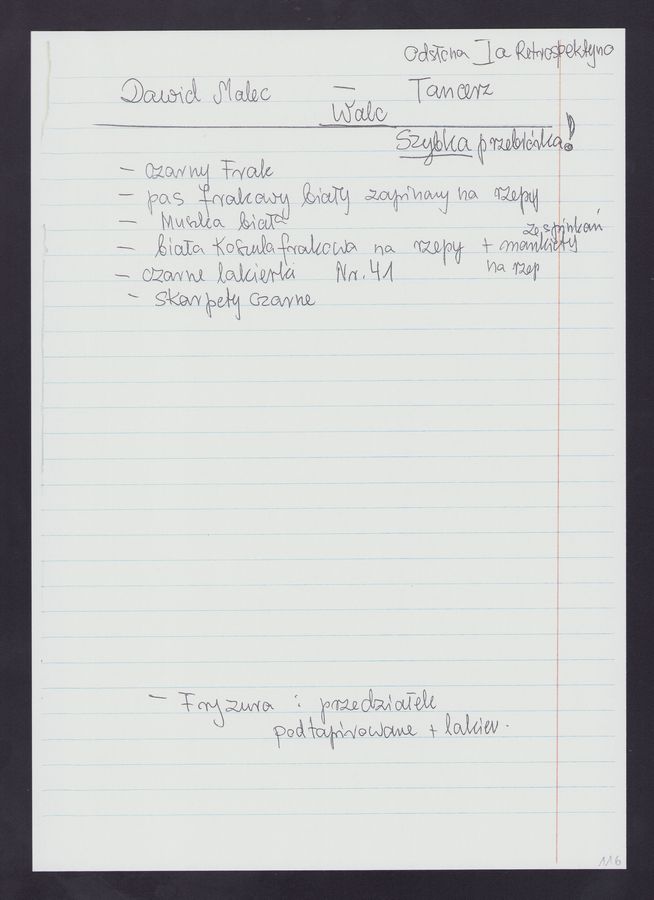 Odsłona I a Retrospektywna
Dawid Malec — Tancerz
Walc
Szybka przebiórka!
- czarny Frak
- pas frakowy biały zapinany na rzepy
- Muszka biała
- biała Koszula frakowa na rzepy + mankiety ze spinkań
na rzep
- czarne lakierki Nr. 41
- skarpety czarne
- Fryzura : przedziałek
podtapirowane + lakier.
116